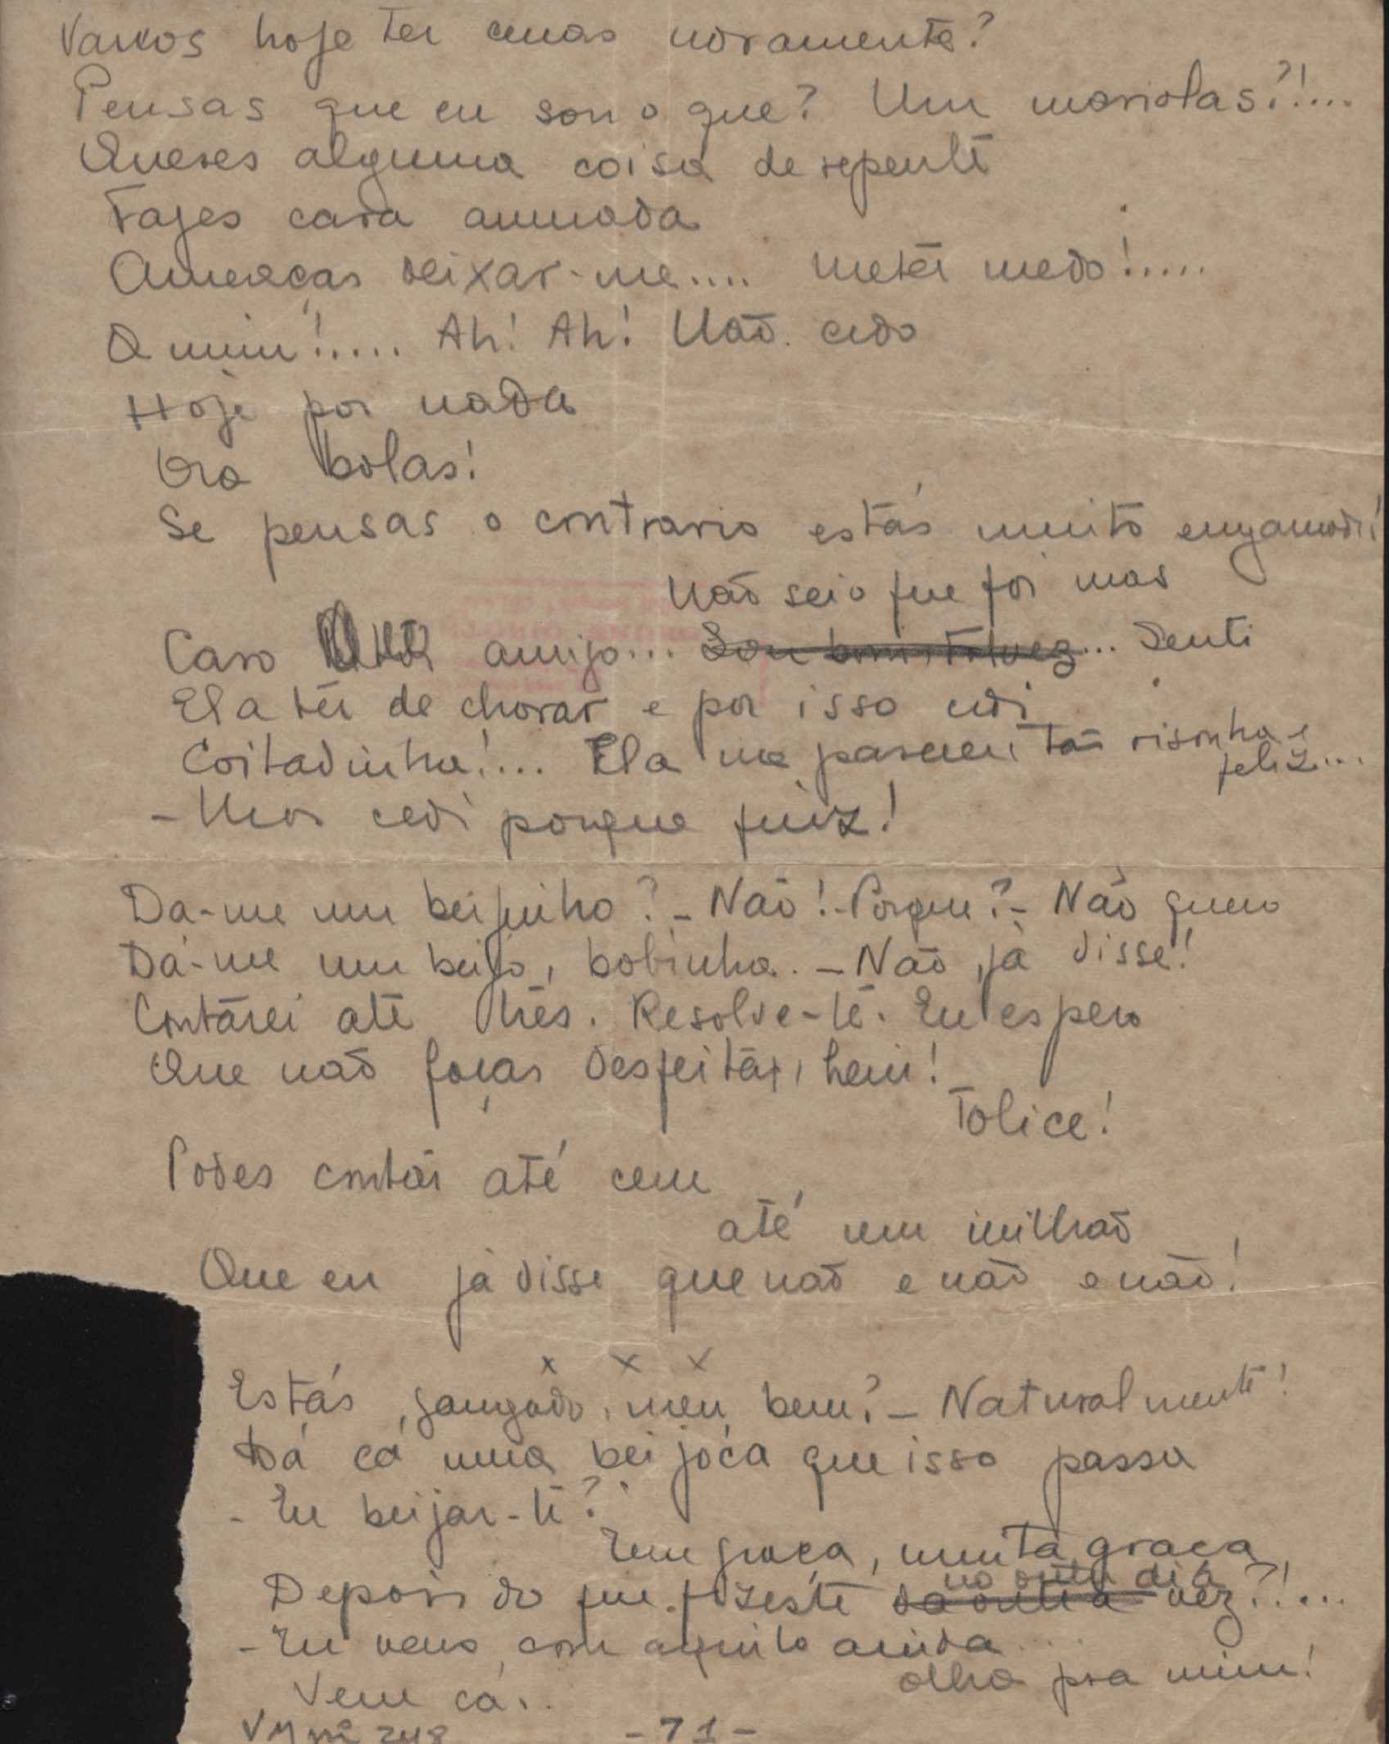 Vamos hoje ter cenas novamente?
Pensas que eu sou o que? Um mariolas?!...
Queres alguma coisa de repente
Fazes cara amuada
Ameaças deixar-me.... meter medo!.....
A mim!..... Ah! Ah! Não cedo
Hoje por nada
Ora bolas!
Se pensas o contrario estás muito enganada!
Não sei o que foi mas
Caro amigo... Sou bom, talvez... Senti
Ela ter de chorar e por isso cedi
Coitadinha!... Ela me pareceu tão risonha e
feliz...
- Mas cedi porque quiz!
Da-me um beijinho? - Não! - Porque? - Não quero
Dá-me um beijo, bobinha. - Não, já disse!
Contarei até três. Resolve-te. Eu espero
Que não faças desfeitas, hein!
Tolice!
Podes contar até cem
até um milhão
Que eu já disse que não e não e não!
x x x
Estás zangado, meu bem? - Naturalmente!
Dá cá uma beijoca que isso passa
- Eu beijar-te?
Tem graça, muita graça
no outro dia
Depois do que fizeste da outra vez?!...
- Eu com aquilo ainda...
olha pra mim!
Vem cá..
- 71 -